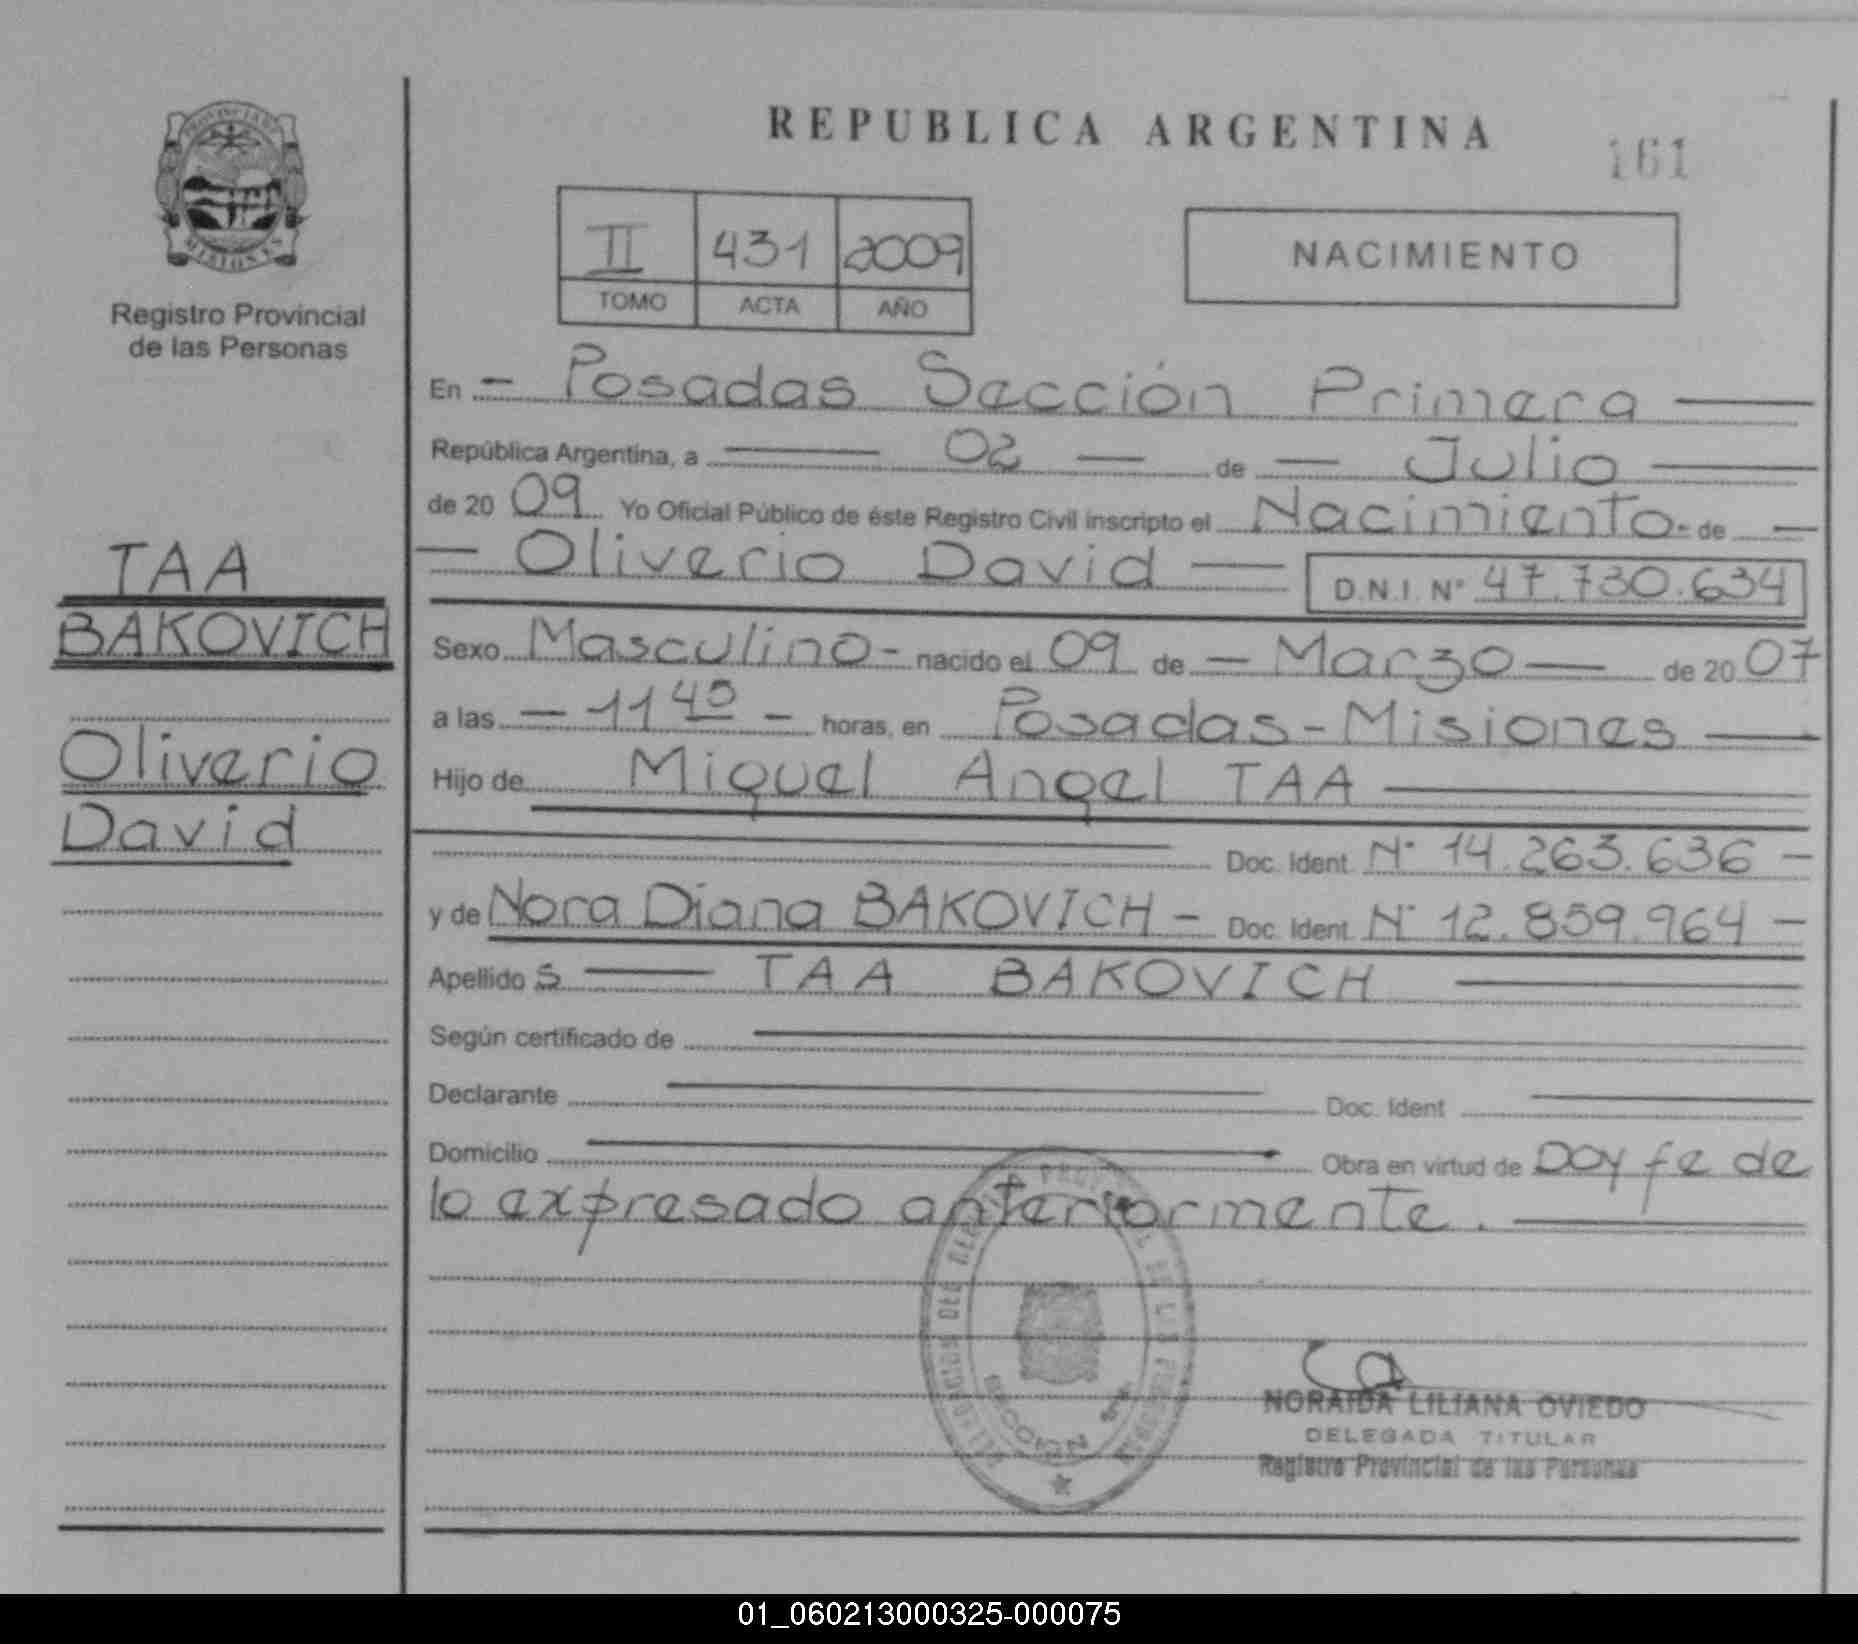 REPUBLICA ARGENTINA
161
PROVINCIA DE
MISIONES
Registro Provincial
de las Personas
II 431 2009
TOMO ACTA AÑO
NACIMIENTO
TAA
BAKOVICH
Oliverio
David
En - Posadas Sección Primera
República Argentina, a 02 - de - Julio
de 20 09 Yo Oficial Público de éste Registro Civil inscripto el Nacimiento - de -
- Oliverio David - D.N.I. Nº 47.730.634
Sexo Masculino - nacido el 09 de - Marzo - de 20 07
a las - 11 45 - horas, en Posadas - Misiones
Hijo de Miguel Angel TAA
Doc. Ident. Nº 14.263.636 -
y de Nora Diana BAKOVICH - Doc. Ident. Nº 12.859.964 -
Apellido s TAA BAKOVICH
Según certificado de
Declarante Doc. Ident
Domicilio Obra en virtud de Doy fe de
lo expresado anteriormente.
SECCION
NORAIDA LILIANA OVIEDO
DELEGADA TITULAR
Registro Provincial de las Personas
01_060213000325-000075